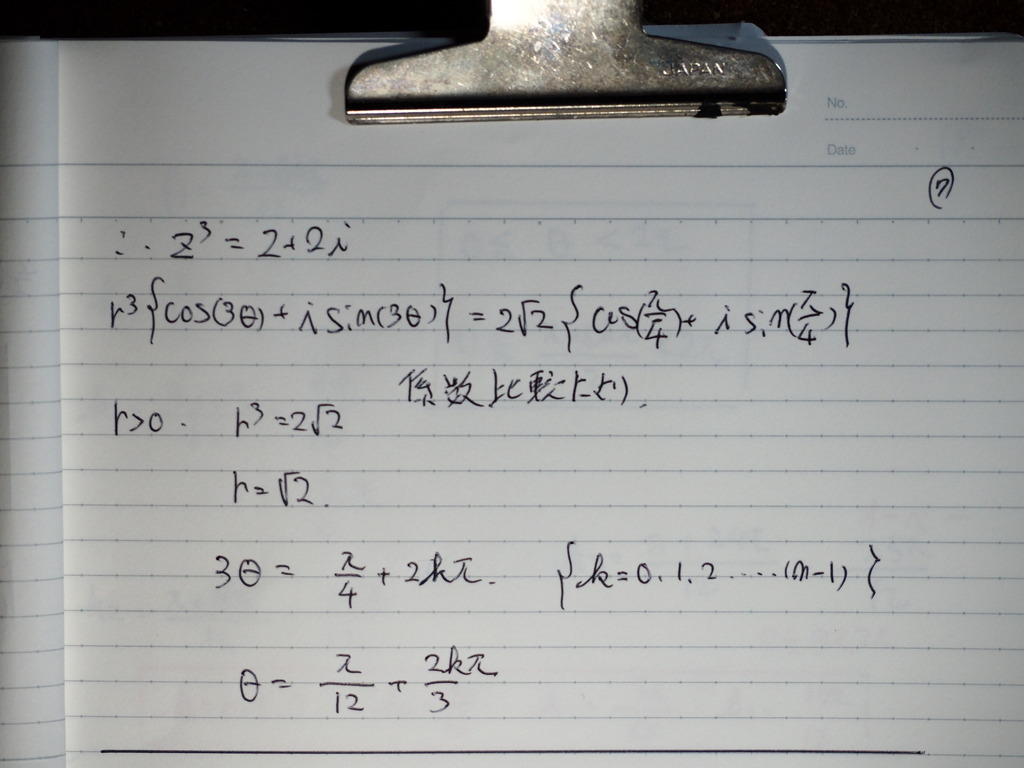 JAPAN
No.
Date
⑦
∴ z³ = 2+2i
r³{cos(3θ) + i sin(3θ)} = 2√2 {cos(π/4) + i sin(π/4)}
係数比較により、
r>0. r³=2√2
r=√2.
3θ = π/4 + 2kπ. {k=0.1.2.....(n-1)}
θ = π/12 + 2kπ/3